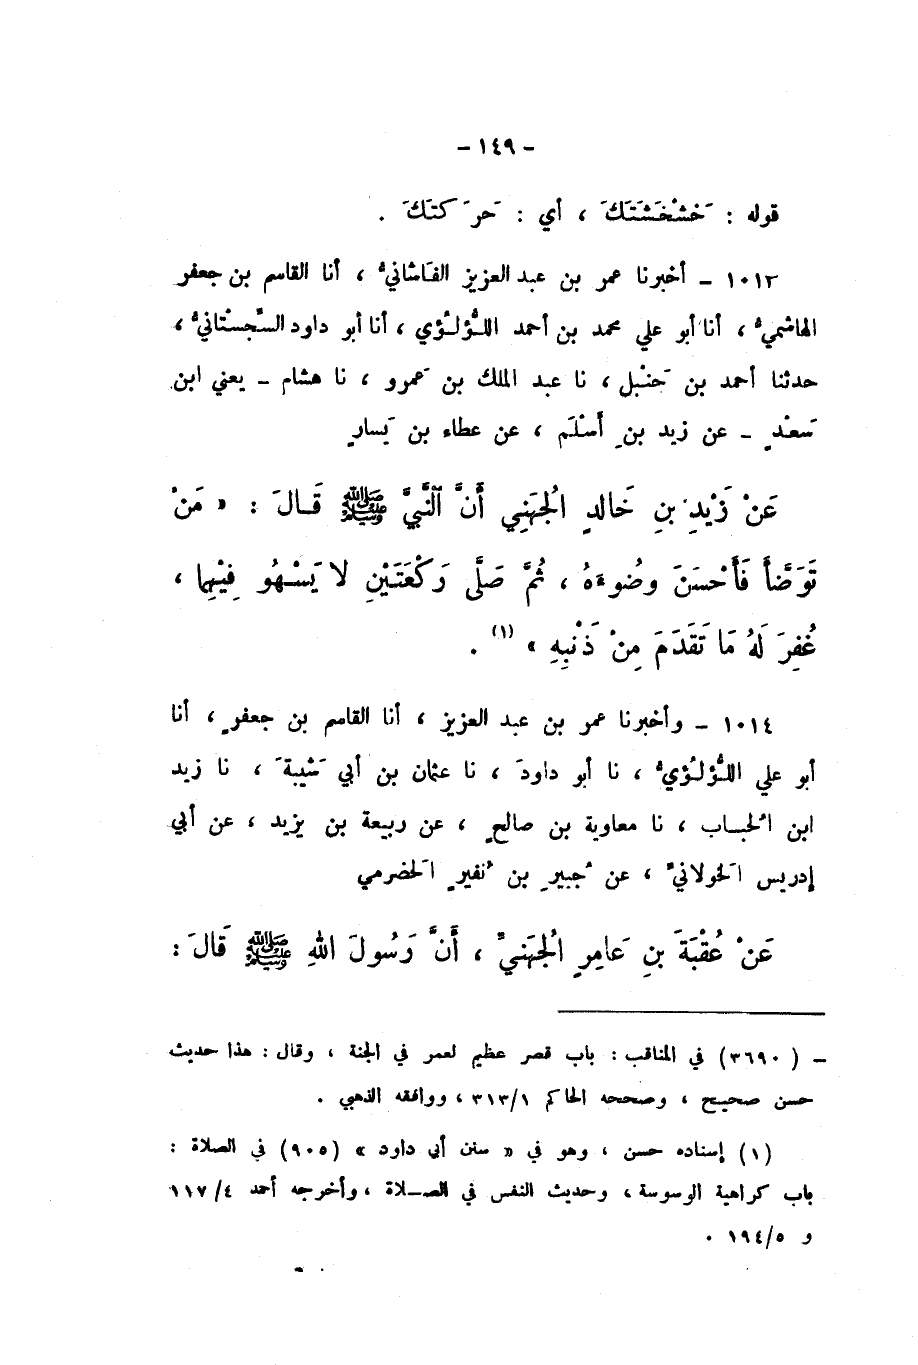 - ١٤٩ -
قوله : خَشْخَشَتَكَ ، أي : حَرَكَتَكَ .
١٠١٣ - أخبرنا عمر بن عبد العزيز الفَاشانيُّ ، أنا القاسم بن جعفر
الهاشميُّ ، أنا أبو علي محمد بن أحمد اللُّؤلُؤي ، أنا أبو داود السِّجِسْتانيُّ ،
حدثنا أحمد بن حَنْبل ، نا عبد الملك بن عَمرو ، نا هشام - يعني ابن
سَعْدٍ - عن زيد بنِ أَسْلَم ، عن عطاء بن يَسارٍ
عَنْ زَيْدِ بنِ خَالدٍ الْجُهَنِي أَنَّ النَّبيَّ ﷺ قَالَ : « مَنْ
تَوَضَّأَ فَأَحْسَنَ وضُوءَهُ ، ثُمَّ صَلَّى رَكْعَتَيْنِ لا يَسْهُو فِيْهِما ،
غُفِرَ لَهُ مَا تَقَدَمَ مِنْ ذَنْبِهِ » (١) .
١٠١٤ - وأخبرنا عمر بن عبد العزيز ، أنا القاسم بن جعفرٍ ، أنا
أبو علي اللُّؤلُؤيُّ ، نا أبو داودَ ، نا عثمان بن أبي شَيبةَ ، نا زيد
ابن الحُباب ، نا معاوية بن صالحٍ ، عن ربيعة بن يزيد ، عن أبي
إدريس الخَولانيِّ ، عن جُبيرِ بن نُفيرٍ الحَضرمي
عَنْ عُقْبَةَ بنِ عَامِرٍ الْجُهَنيِّ ، أَنَّ رَسُولَ اللهِ ﷺ قَالَ :
- ( ٣٦٩٠ ) في المناقب : باب قصر عظيم لعمر في الجنة ، وقال : هذا حديث
حسن صحيح ، وصححه الحاكم ٣١٣/١ ، ووافقه الذهبي .
(١) إسناده حسن ، وهو في « سنن أبي داود » (٩٠٥) في الصلاة :
باب كراهية الوسوسة ، وحديث النفس في الصـلاة ، وأخرجه أحمد ١١٧/٤
و ١٩٤/٥ .